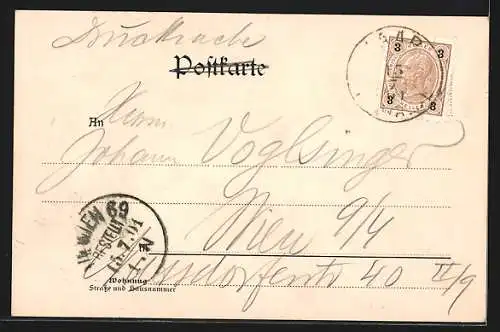 Drucksache
Postkarte
3 3
3 3
An
Herrn
Johann Voglsinger
Wien 9/4
WIEN 69
BESTELLT
15.7.01
in
40 II/9
Wohnung
Straße und Hausnummer